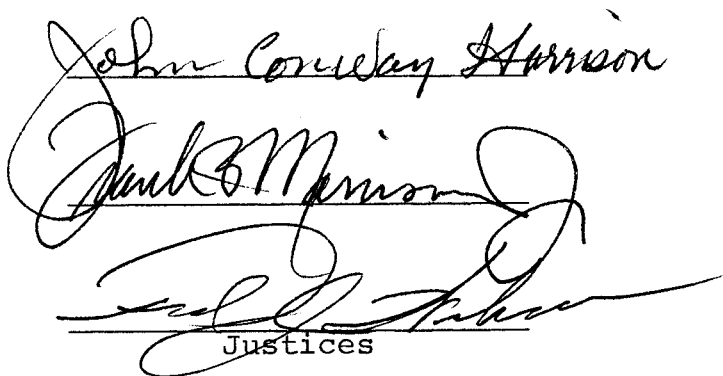 John Conway Harrison
Frank B Morrison Jr
Justices